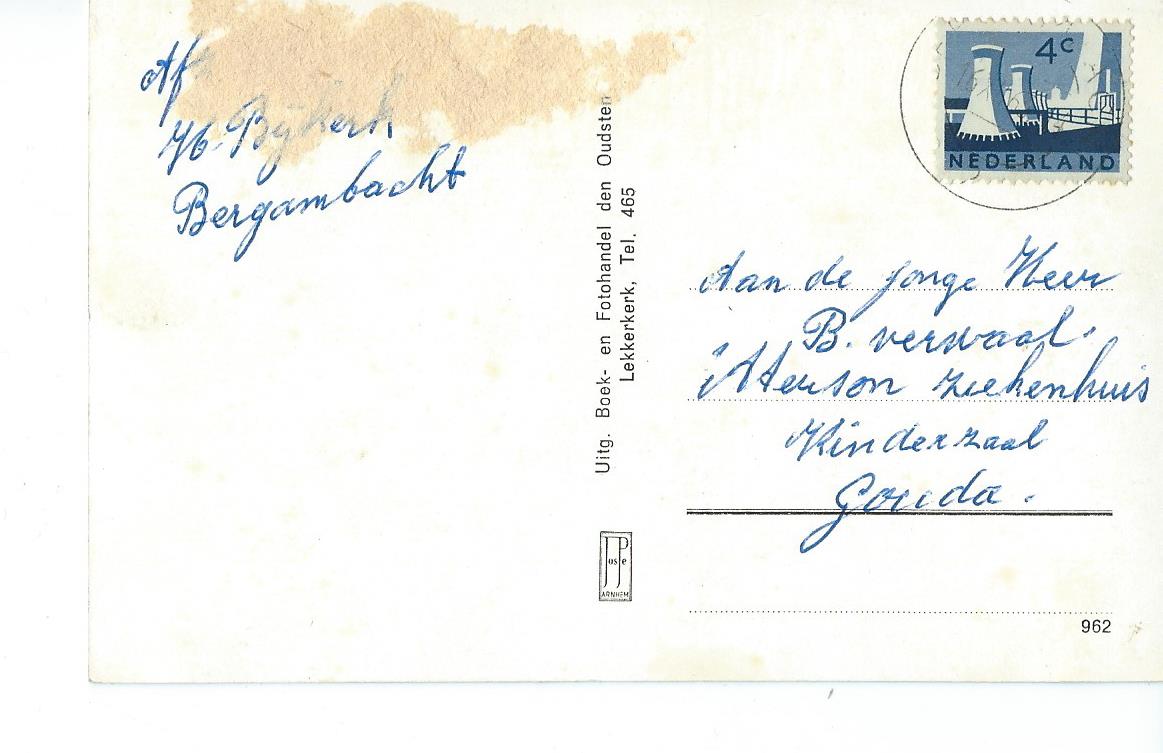 Af
H. Bijkerk
Bergambacht
Uitg. Boek- en Fotohandel den Oudsten
Lekkerkerk, Tel. 465
JosPe
ARNHEM
4c
NEDERLAND
Aan de jonge Heer
B. verwaal.
Iterson ziekenhuis
Kinderzaal
Gouda.
962